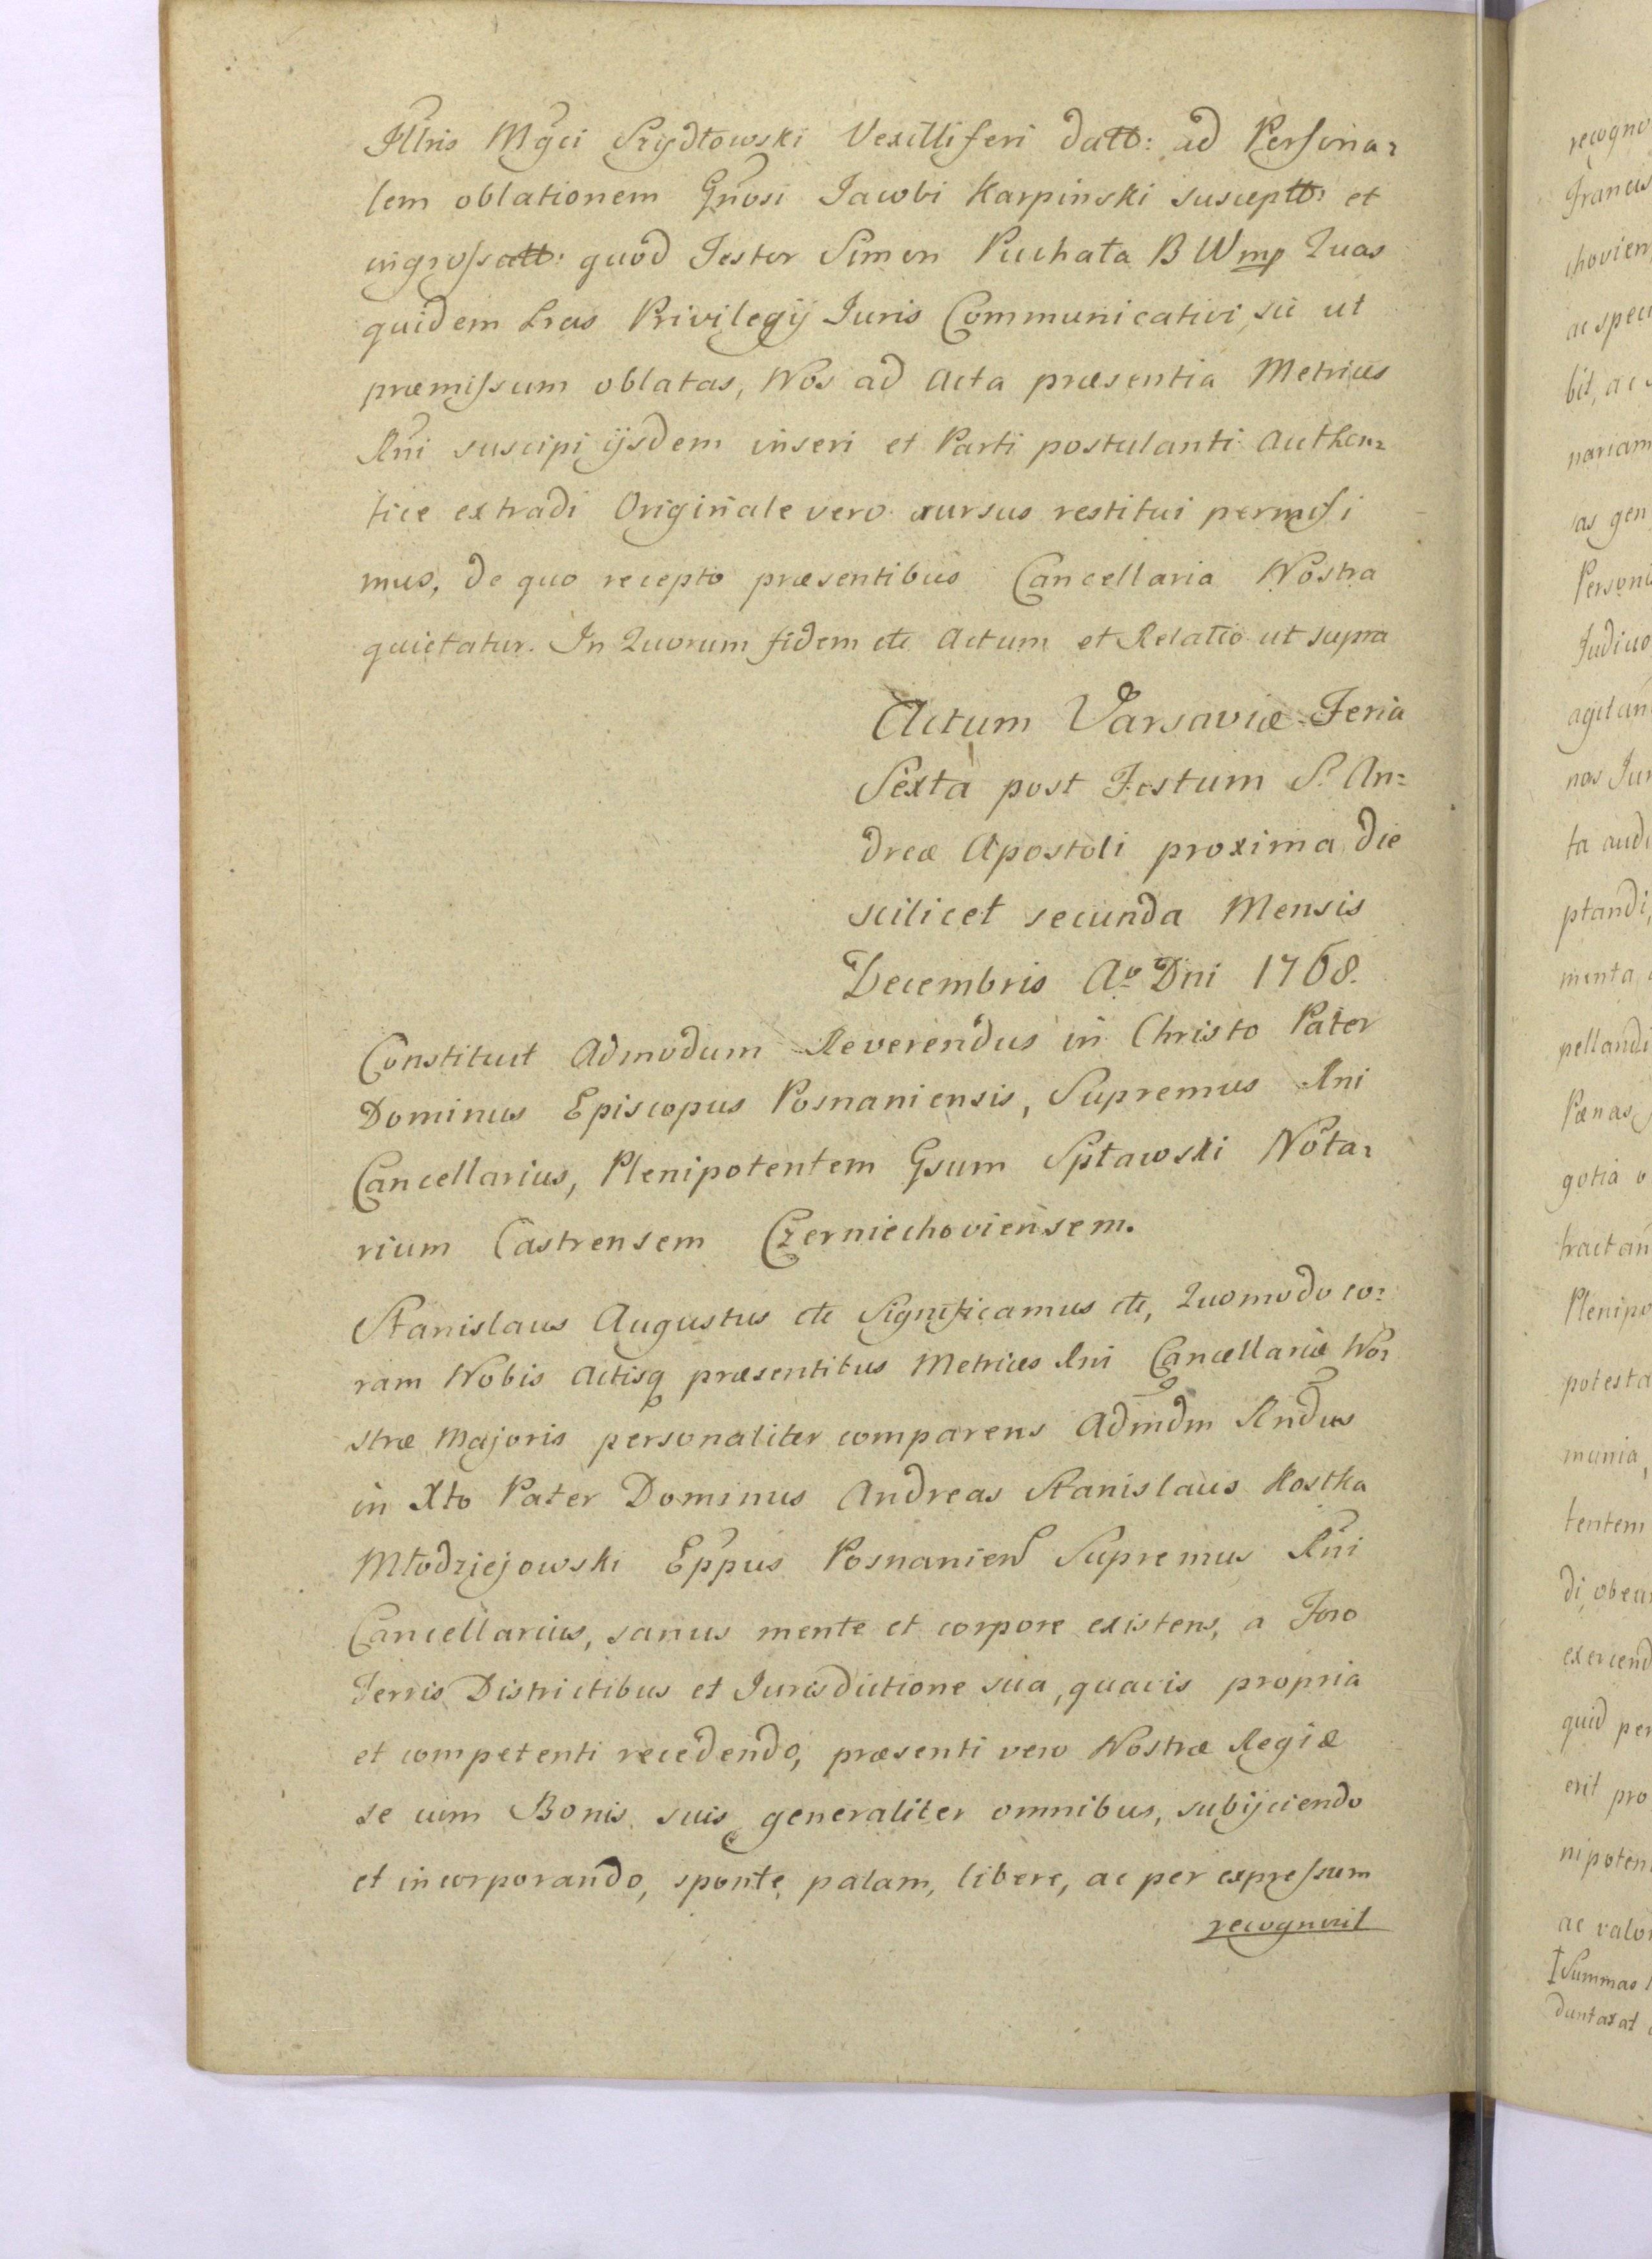 Illris Mgci Szydłowski Vexilliferi datt: ad Persona-
lem oblationem Gnosi Jacobi Karpinski susceptt: et
ingrossatt: quod Testor Simon Puchała B W mp Quas
quidem Lras Privilegij Juris Communicativi, sic ut
præmissum oblatas, Nos ad Acta præsentia Metrices
Rni suscipi ijsdem inseri et Parti postulanti Authen-
tice extradi Originale vero rursus restitui permisi
mus, de quo recepto præsentibus Cancellaria Nostra
quietatur. In Quorum fidem etc Actum et Relatio ut supra
Actum Varsaviæ Feria
Sexta post Festum S. An-
dreæ Apostoli proxima die
scilicet secunda Mensis
Decembris Ao Dni 1768.
Constituit Admodum Reverendus in Christo Pater
Dominus Episcopus Posnaniensis, Supremus Rni
Cancellarius, Plenipotentem Gsum Spławski Nota-
rium Castrensem Czerniechoviensem.
Stanislaus Augustus etc Significamus etc, Quomodo co-
ram Nobis Actisq præsentibus Metrices Rni Cancellariæ No-
stræ Majoris personaliter comparens Admdm Rndus
in Xto Pater Dominus Andreas Stanislaus Kostka
Młodziejowski Eppus Posnanien Supremus Rni
Cancellarius, sanus mente et corpore existens, a Foro
Terris Districtibus et Jurisdictione sua, quavis propria
et competenti recedendo, præsenti vero Nostræ Regiæ
se cum Bonis suis generaliter omnibus, subijciendo
et incorporando, sponte, palam, libere, ac per expressum
recognovit
recogno
Francis
chovien
ac speci
bit, ac
nariam
as gen
Person
Judicio
agitan
nos Jur
ta audi
ptandi,
menta
pellandi
Pænas
gotia
tractan
Plenipo
potesta
munia,
tentem
di, obea
exercend
quid per
erit pro
nipoten
ac valo
Summas
duntaxat